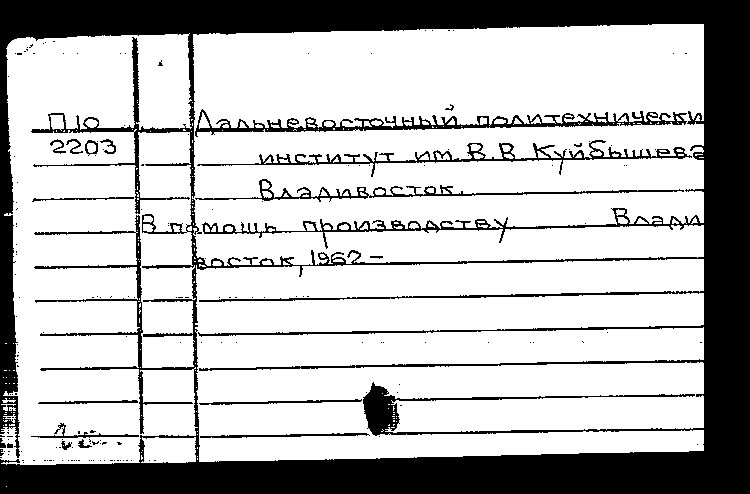 П 10 Дальневосточный политехнически
2203 институт им. В.В. Куйбышева
Владивосток.
В помощь производству Влади
восток, 1962 –